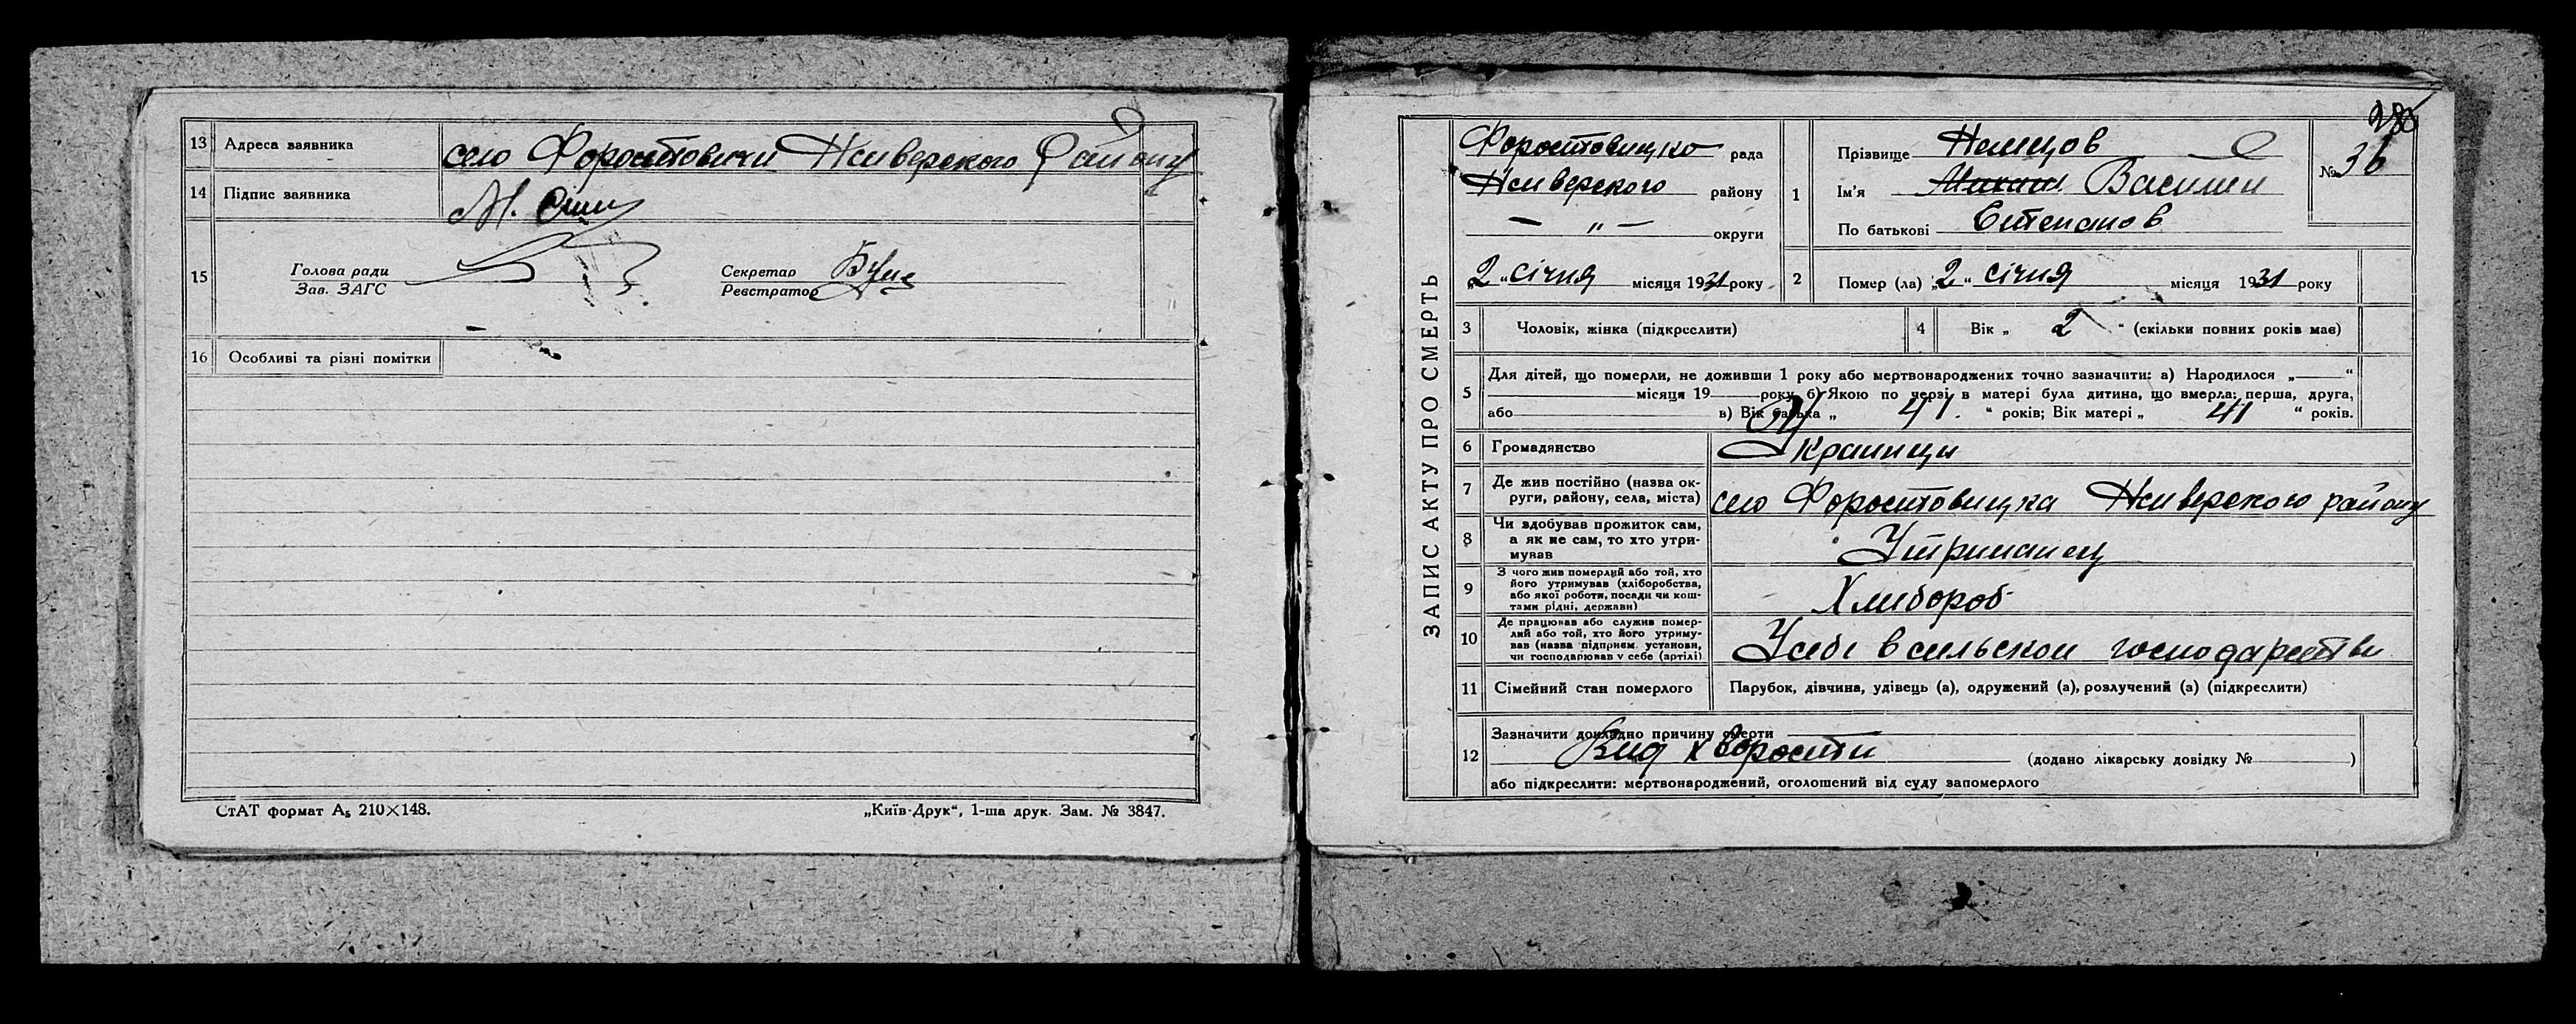 13 Адреса заявника село Форостовичи Нсиверского Району
14 Підпис заявника
15 Голова ради
Зав. ЗАГС
Секретар
Реєстратор
16 Особливі та різні помітки
СтАТ формат А₅ 210×148.
„Київ-Друк“, 1-ша друк. Зам. № 3847.
ЗАПИС АКТУ ПРО СМЕРТЬ
Форостовицко рада
Нсиверского району
— " — округи
„2“ січня місяця 1931 року
1 Прізвище Немцов
Ім'я Василий
По батькові Степанов
№ 36
2 Помер (ла) „2“ січня місяця 1931 року
3 Чоловік, жінка (підкреслити)
4 Вік „ 2 “ (скільки повних років має)
5 Для дітей, що померли, не доживши 1 року або мертвонароджених точно зазначити: а) Народилося „—“
місяця 19— року б) Якою по черзі в матері була дитина, що вмерла: перша, друга,
або в) Вік батька „ 41. “ років; Вік матері „ 41 “ років.
6 Громадянство Украинци
7 Де жив постійно (назва ок-
руги, району, села, міста) село Форостовицка Нсиверского району
8 Чи здобував прожиток сам,
а як не сам, то хто утри-
мував Утриманец
9 З чого жив померлий або той, хто
його утримував (хліборобства,
або якої роботи, посади чи кош-
тами рідні, держави) Хлибороб
10 Де працював або служив помер-
лий або той, хто його утриму-
вав (назва підприєм. установи,
чи господарював у себе (артілі) Усебе в сильском господарстви
11 Сімейний стан померлого Парубок, дівчина, удівець (а), одружений (а), розлучений (а) (підкреслити)
12 Зазначити докладно причину смерти
Вид хворости (додано лікарську довідку № )
або підкреслити: мертвонароджений, оголошений від суду запомерлого